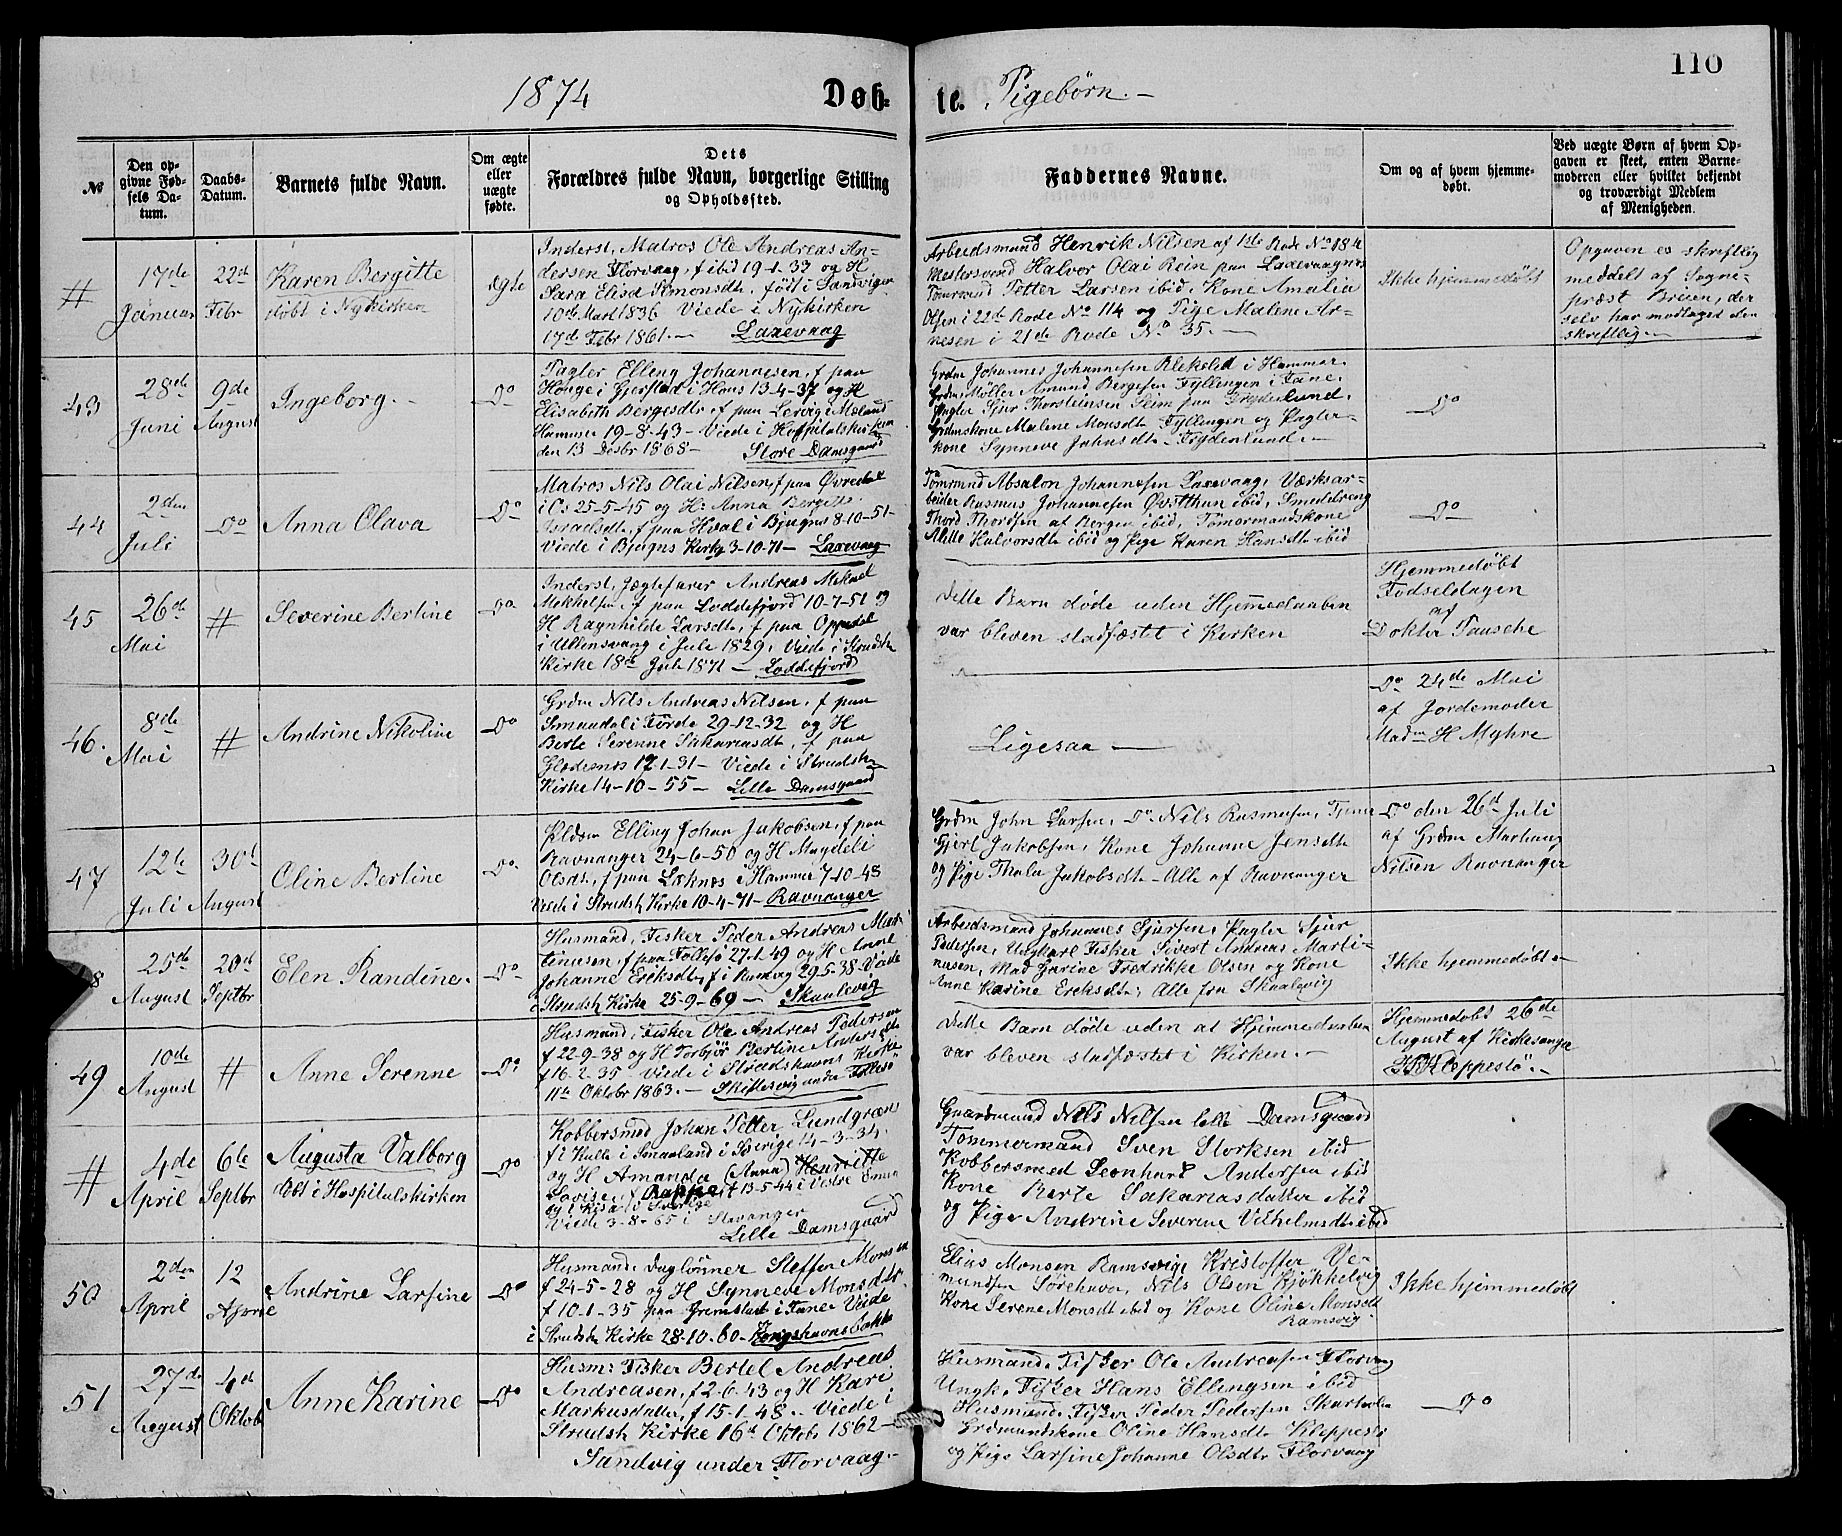 110
1874 Døb- te. Pigebørn.-
№
Den opgivne Fødsels Datum.
Daabs-Datum.
Barnets fulde Navn.
Om ægte eller uægte fødte.
Dets Forældres fulde Navn, borgerlige Stilling og Opholdssted.
Faddernes Navne.
Om og af hvem hjemmedøbt.
Ved uægte Børn af hvem Opgaven er skeet, enten Barnemoderen eller hvilket bekjendt og troværdigt Medlem af Menigheden.
#
17de Januar
22de Febr
Karen Bergitte
døbt i Nykirken
ægte
Inderst, Matros Ole Andreas An-
dersen Florvaag, f ibid 19-1-33 og H
Sara Elisa Simonsdt., født i Sandvigen
10de Marts 1836 Viede i Nykirken
17d Febr 1861.- Laxevaag
Arbeidsmand Henrik Nilsen af 1ste Rode No 184
Mestersvend Halvor Olai Rein paa Laxevaagnes
Tømrsvend Petter Larsen ibid, Kone Amalia
Olsen i 22de Rode No 114 og Pige Malene Ar-
nesen i 21de Rode No 35.-
Ikke hjemmedøbt
Opgaven er skriftlig
meddelt af Sogne-
præst Bruun, der
selv har modtaget den
skriftlig.-
43
28de Juni
9de August
Ingeborg.-
Do
Pagter Elling Johannesen, f paa
Hauge i Gjerstad i Hous 13-4-37 og H
Elisabeth Bergesdt., f paa Lervig i Meland
Hammer 19-8-43- Viede i Hospitalskirken
den 13 Desbr 1868- Store Damsgaard
Grdm Johannes Johannesen Blekelid i Hammer
Grdm, Møller Amund Bergesen Fyllingen i Fane,
Pagter Sjur Thorsteinsen Seim paa Frydenlund,
Grdmskone Malene Monsdt. Fyllingen og Pagter-
kone Synneve Johnsdt. Frydenlund.-
Do
44
2den Juli
Do
Anna Olava
Do
Matros Nils Olai Nilsen, f paa Øvredal
25-5-45 og H: Anna Bergitte
Israelsdt., f paa Hval i Bjugns 8-10-51-
Viede i Bjugns Kirke 3-10-71- Laxevaag
Tømrmd Absalon Johannesen Laxevaag, Værksar-
beider Rasmus Johannesen Øvstthun ibid, Smeddreng
Thord Thordsen af Bergen ibid, Tømermandskone
Alette Halvorsdt ibid og Pige Karen Hansdt ibid
Do
45
26de Mai
#
Severine Bertine
Do
Inderst, Jægtefører Andreas Mikael
Mikkelsen, f paa Loddefjord 10-7-51 og
H Ragnhilde Larsdt., f paa Oppedal
i Ullensvang i Juli 1829, Viede i Strudsh
Kirke 18de Juli 1871- Loddefjord
Dette Barn døde uden Hjemedaaben
var bleven stadfæstet i Kirken
Hjemmedøbt
Fødseldagen
af
Doktor Tausche
46.
8de Mai
#
Andrine Nikoline
Do
Grdm Nils Andreas Nilsen, f paa
Smaadal i Førde 29-12-32 og H
Berte Serenne Sakariasdt., f paa
Glodernes 12-1-31- Viede i Strudsh
Kirke 14-10-55- Lille Damsgaard
Ligesaa
Do 24de Mai
af Jordemoder
Madm H Myhre
47
12te Juli
30d August
Oline Bertine
Do
Pldsm Elling Johan Jakobsen, f paa
Ravnanger 24-6-50 og H Magdeli
Olsdt., f paa Læknes i Hammer 7-10-48
Viede i Strudsh Kirke 10-4-71- Ravnanger
Grdm John Larsen, Do Nils Rasmusen, Tjener
Gjert Jakobsen, Kone Johanne Jensdt
og Pige Thalea Jakobsdt- Alle af Ravnanger
Do den 26d Juli
af Grdm Markung
Nilsen Ravnanger
8
25de August
20d Septbr
Elen Randine.
Do
Husmand, Fisker Peder Andreas Mar-
tinusen, f paa Follesø 27-1-49 og H Anne
Johanne Eriksdt., f i Ramsvig 29-5-38 Viede
i Strudsh Kirke 25-9-69- Skaalevig
Arbeidsmand Johannes Sjursen, Pagter Sjur
Pedersen, Ungkarl Fisker Sivert Andreas Marti-
nusen, Mad Gurine Fredrikke Olsen og Kone
Anne Karine Eriksdt., Alle fra Skaalevig
Ikke hjemmedøbt-
49
10de August
#
Anne Serenne
Do
Husmand, Fisker Ole Andreas Pedersen
f 22-9-38 og H Torbjør Bertine Andersdt.
f 16-2-35- Viede i Strudshavns Kirke
11te Oktobr 1863.- Skiftesvig under Follesø
Dette Barn døde uden at Hjemmedaaben
var bleven stadfæstet i Kirken.-
Hjemmedøbt 26de
August af Kirkesanger
Kleppestø.-
#
4de April
6te Septbr
Augusta Valborg
Døbt i Hospitalskirken
Do
Kobbersmed Johan Petter Lundgreens
f i Kulle i Smaaland i Sverige 14-3-34.
og H Amanda (Anna) Henriette
Lovise, f Rappe f 13-5-44 i Vestre Emma
og i Risa i Sverige
Viede 3-8-65 i Stavanger
Lille Damsgaard
Gaardmand Nils Nilsen lille Damsgaard
Tømmermand Sven Storksen ibid
Kobbersmed Leonhard Andersen ibid
Kone Berte Sakariasdatter ibid
og Pige Andrine Severine Vilhelmsdt. ibid
50
2den April
12 Aprie
Andrine Larsine
Do
Husmand, Daglønner Steffen Monsen
f 24-5-28 og H Synneve Monsdtr.
f 10-1-35 paa Grimstad i Fane Viede
i Strudsh Kirke 28-10-60- Kongshavnsbakke
Elias Monsen Ramsvig, Kristoffer Ve-
mundsen Sørehavn, Nils Olsen Bjøkkelvig
Kone Serene Monsdt ibid og Kone Oline Monsdt
Ramsvig
Ikke hjemmedøbt
51
27de August
4d Oktob
Anne Karine
Do
Husm: Fisker Bertel Andreas
Andreasen, f 2-6-43 og H Kari
Markusdatter, f 15-1-48.. Viede i
Strudsh Kirke 16d Oktobr 1862-
Sandvig under Florvaag.-
Husmand, Fisker Ole Andreasen Florvaag
Ungk, Fisker Hans Ellingsen ibid
Husmand, Fisker Peder Pedersen
Grdmandskone Oline Hansdt. Kleppestø
og Pige Larsine Johanne Olsdtr Florvaag
Do